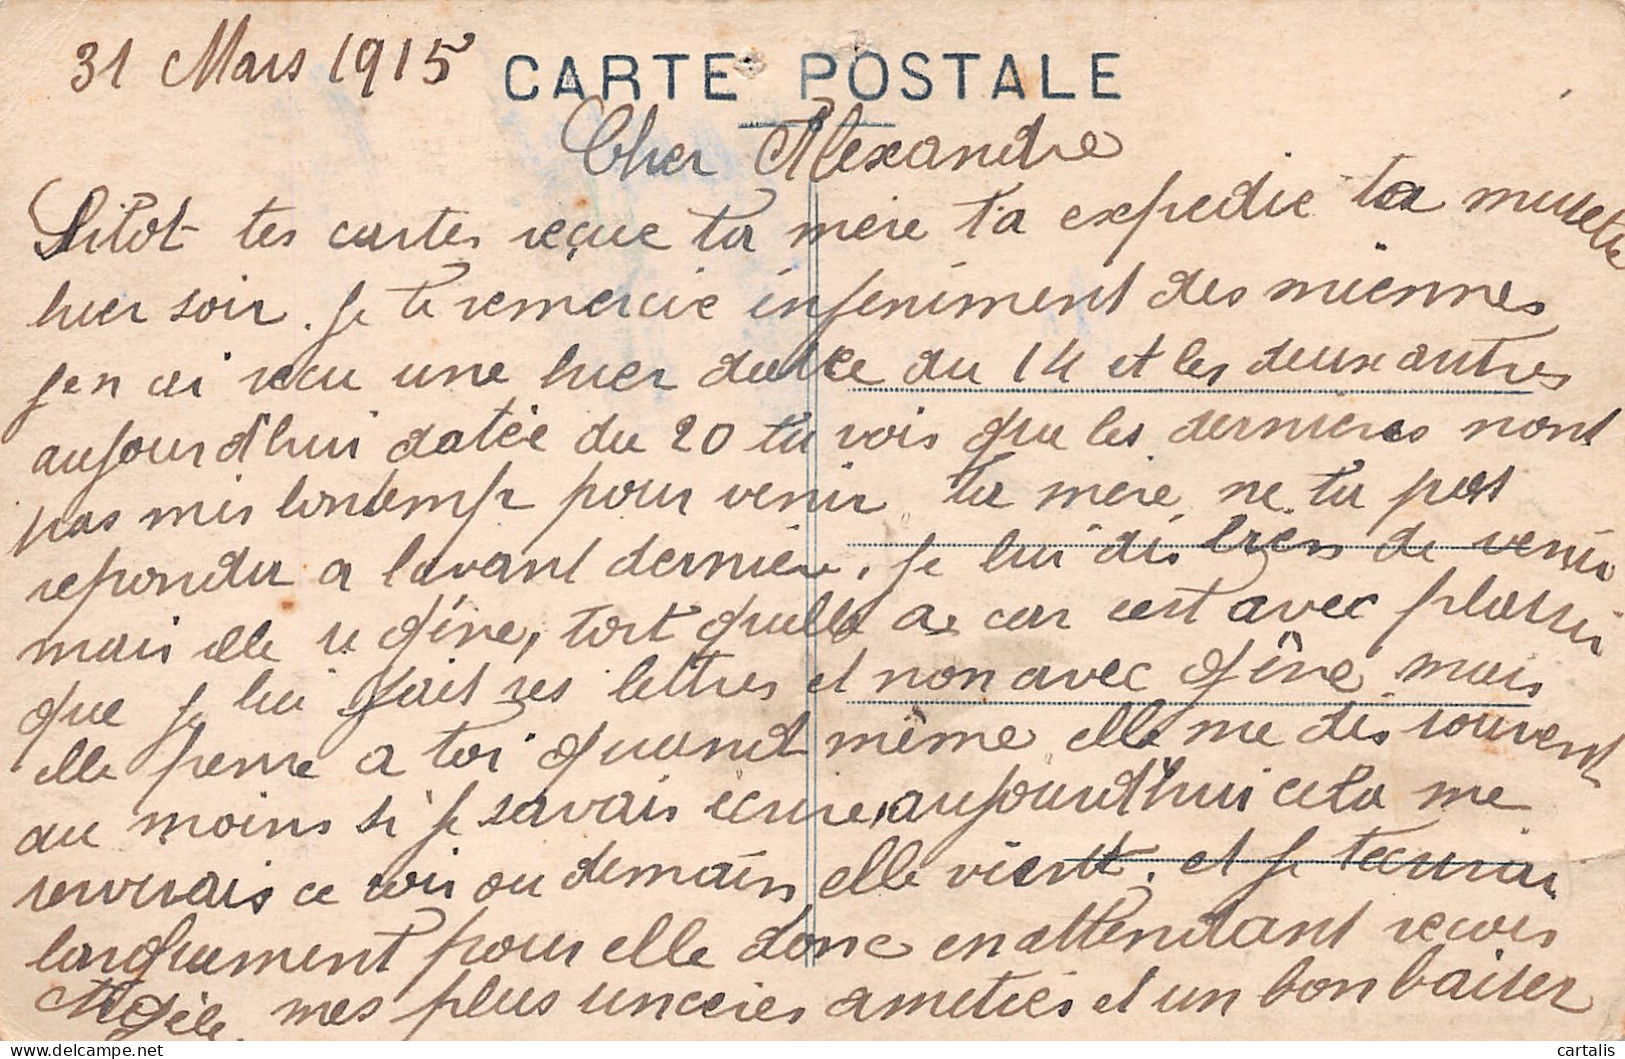 31 Mars 1915
CARTE POSTALE
Cher Alexandre
Sitot tes cartes reçue ta mère t'a expedie ta musette
hier soir. Je te remercie infeniment des miennes
jen ai recu une hier datée du 14 et les deux autres
aujourd'hui datée du 20 tu vois que les dernieres nont
pas mis lontemp pour venir ta mere ne tu pas
repondu a lavant derniere, je lui dis bien de venir
mais elle se gêne, tort quelle a car cest avec plaisir
que je lui fait ses lettres et non avec gêne mais
elle pense a toi quand même elle me dis souvent
au moins si je savais écrire, aujourd'hui cela me
servirais ce soir ou demain elle vient. et je tecrirai
longuement pour elle donc en attendant recois
mes plus sinceres ametiés et un bon baiser
cartalis